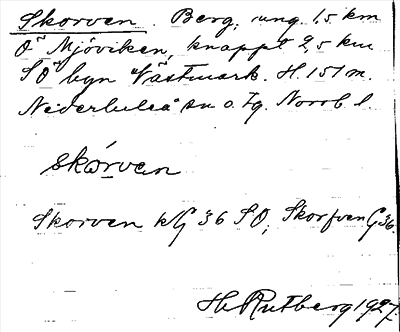 Skorven. Berg, ung. 1,5 km
O Mjöviken, knappt 2,5 km
SO byn Västmark. H. 151 m.
Nederluleå sn o. tg. Norrb. l.
skǻrven
Skorven kG 36 SO, Skorfven G 36.
H. Rutberg 1927.